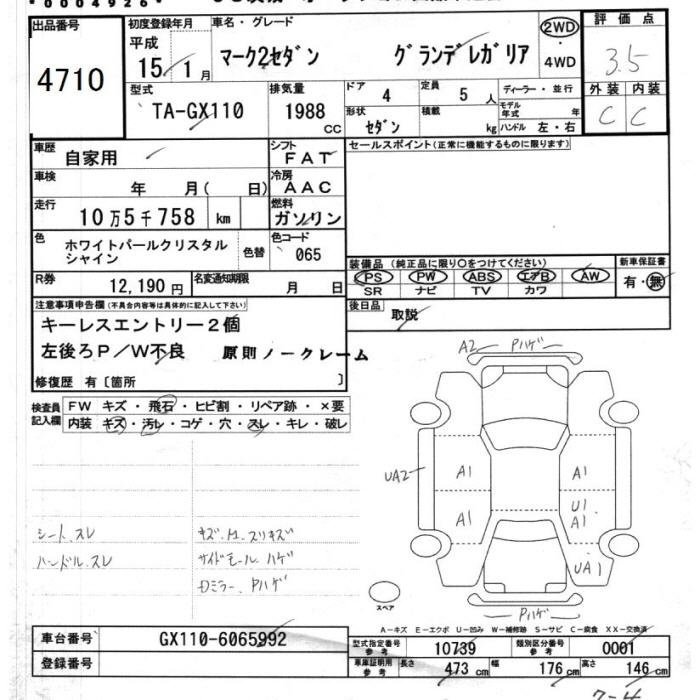 *0004926*
出品番号 初度登録年月 車名・グレード 2WD 評価点
4710 平成 15 1月 マーク2セダン グランデレガリア ・ 4WD 3.5
型式 排気量 ドア 4 定員 5人 ディーラー・並行 外装 内装
TA-GX110 1988 cc 形状 セダン 積載 kg モデル年式 年 C C
ハンドル 左・右
車歴 自家用 シフト FAT セールスポイント(正常に機能するものに限ります)
車検 年 月( 日) 冷房 AAC
走行 10万5千758 km 燃料 ガソリン
色 ホワイトパールクリスタルシャイン 色替 色コード 065
装備品 (純正品に限り○をつけてください) 新車保証書
R券 12,190円 名変通知期限 月 日 PS PW ABS エアB AW 有・無
SR ナビ TV カワ
注意事項申告欄(不具合内容等は具体的に記入して下さい) 後日品 取説
キーレスエントリー2個
左後ろP/W不良 原則ノークレーム
修復歴 有〔箇所 〕
検査員記入欄 FW キズ・飛石・ヒビ割・リペア跡・×要
内装 キズ・汚レ・コゲ・穴・スレ・キレ・破レ
A2 Pハゲ
UA2 A1 A1
A1 U1 A1
UA1
シート、スレ キズ、
ハンドル、スレ サイドモール、ハゲ
Dミラー、Pハゲ
スペア Pハゲ
A-キズ E-エクボ U-凹み W-補修跡 S-サビ C-腐食 XX-交換済
車台番号 GX110-6065992 型式指定番号 参考 10739 類別区分番号 参考 0001
登録番号 車庫証明用 参考 長さ 473 cm 幅 176 cm 高さ 146 cm
7-4